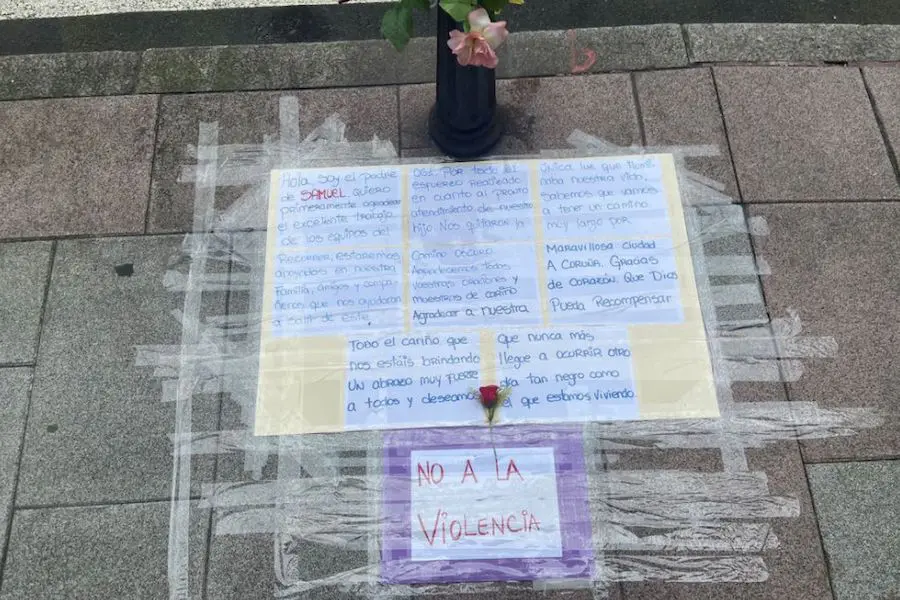 Hola, soy el padre
de SAMUEL quiero
primeramente agradecer
el excelente trabajo
de los equipos del
091 por todo el
esfuerzo realizado
en cuanto al pronto
atendimiento de nuestro
hijo. Nos quitaron la
única luz que
nuestra vida,
sabemos que vamos
a tener un camino
muy largo por
Recorrer, estaremos
apoyados en nuestra
Familia, amigos y compa
ñeros que nos ayudaran
a salir de este
Camino oscuro.
Agradecemos todos
vuestras oraciones y
muestras de cariño
Agradecer a nuestra
Maravillosa ciudad
A Coruña. Gracias
de corazón. Que Dios
Pueda Recompensar
Todo el cariño que
nos estáis brindando
un abrazo muy fuerte
a todos y deseamos
que nunca más
llegue a ocurrir otro
día tan negro como
el que estamos viviendo.
NO A LA
VIOLENCIA